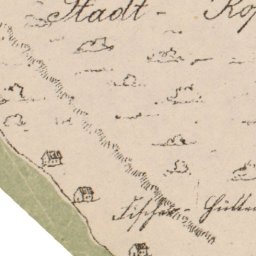 Stadt - Kop
Fischer Hütten